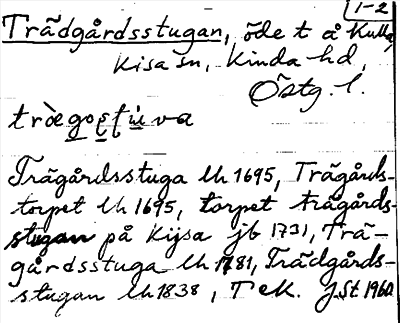 1-2
Trädgårdsstugan, öde t å Kulla,
Kisa sn, Kinda hd,
Östg. l.
Trägårdsstuga lh 1695, Trägårds-
torpet lh 1695, torpet trägårds-
stugan på Kijsa jb 1731, Trä-
gårdsstuga lh 1781, Trädgårds-
stugan lh 1838, T ek. J.St 1960